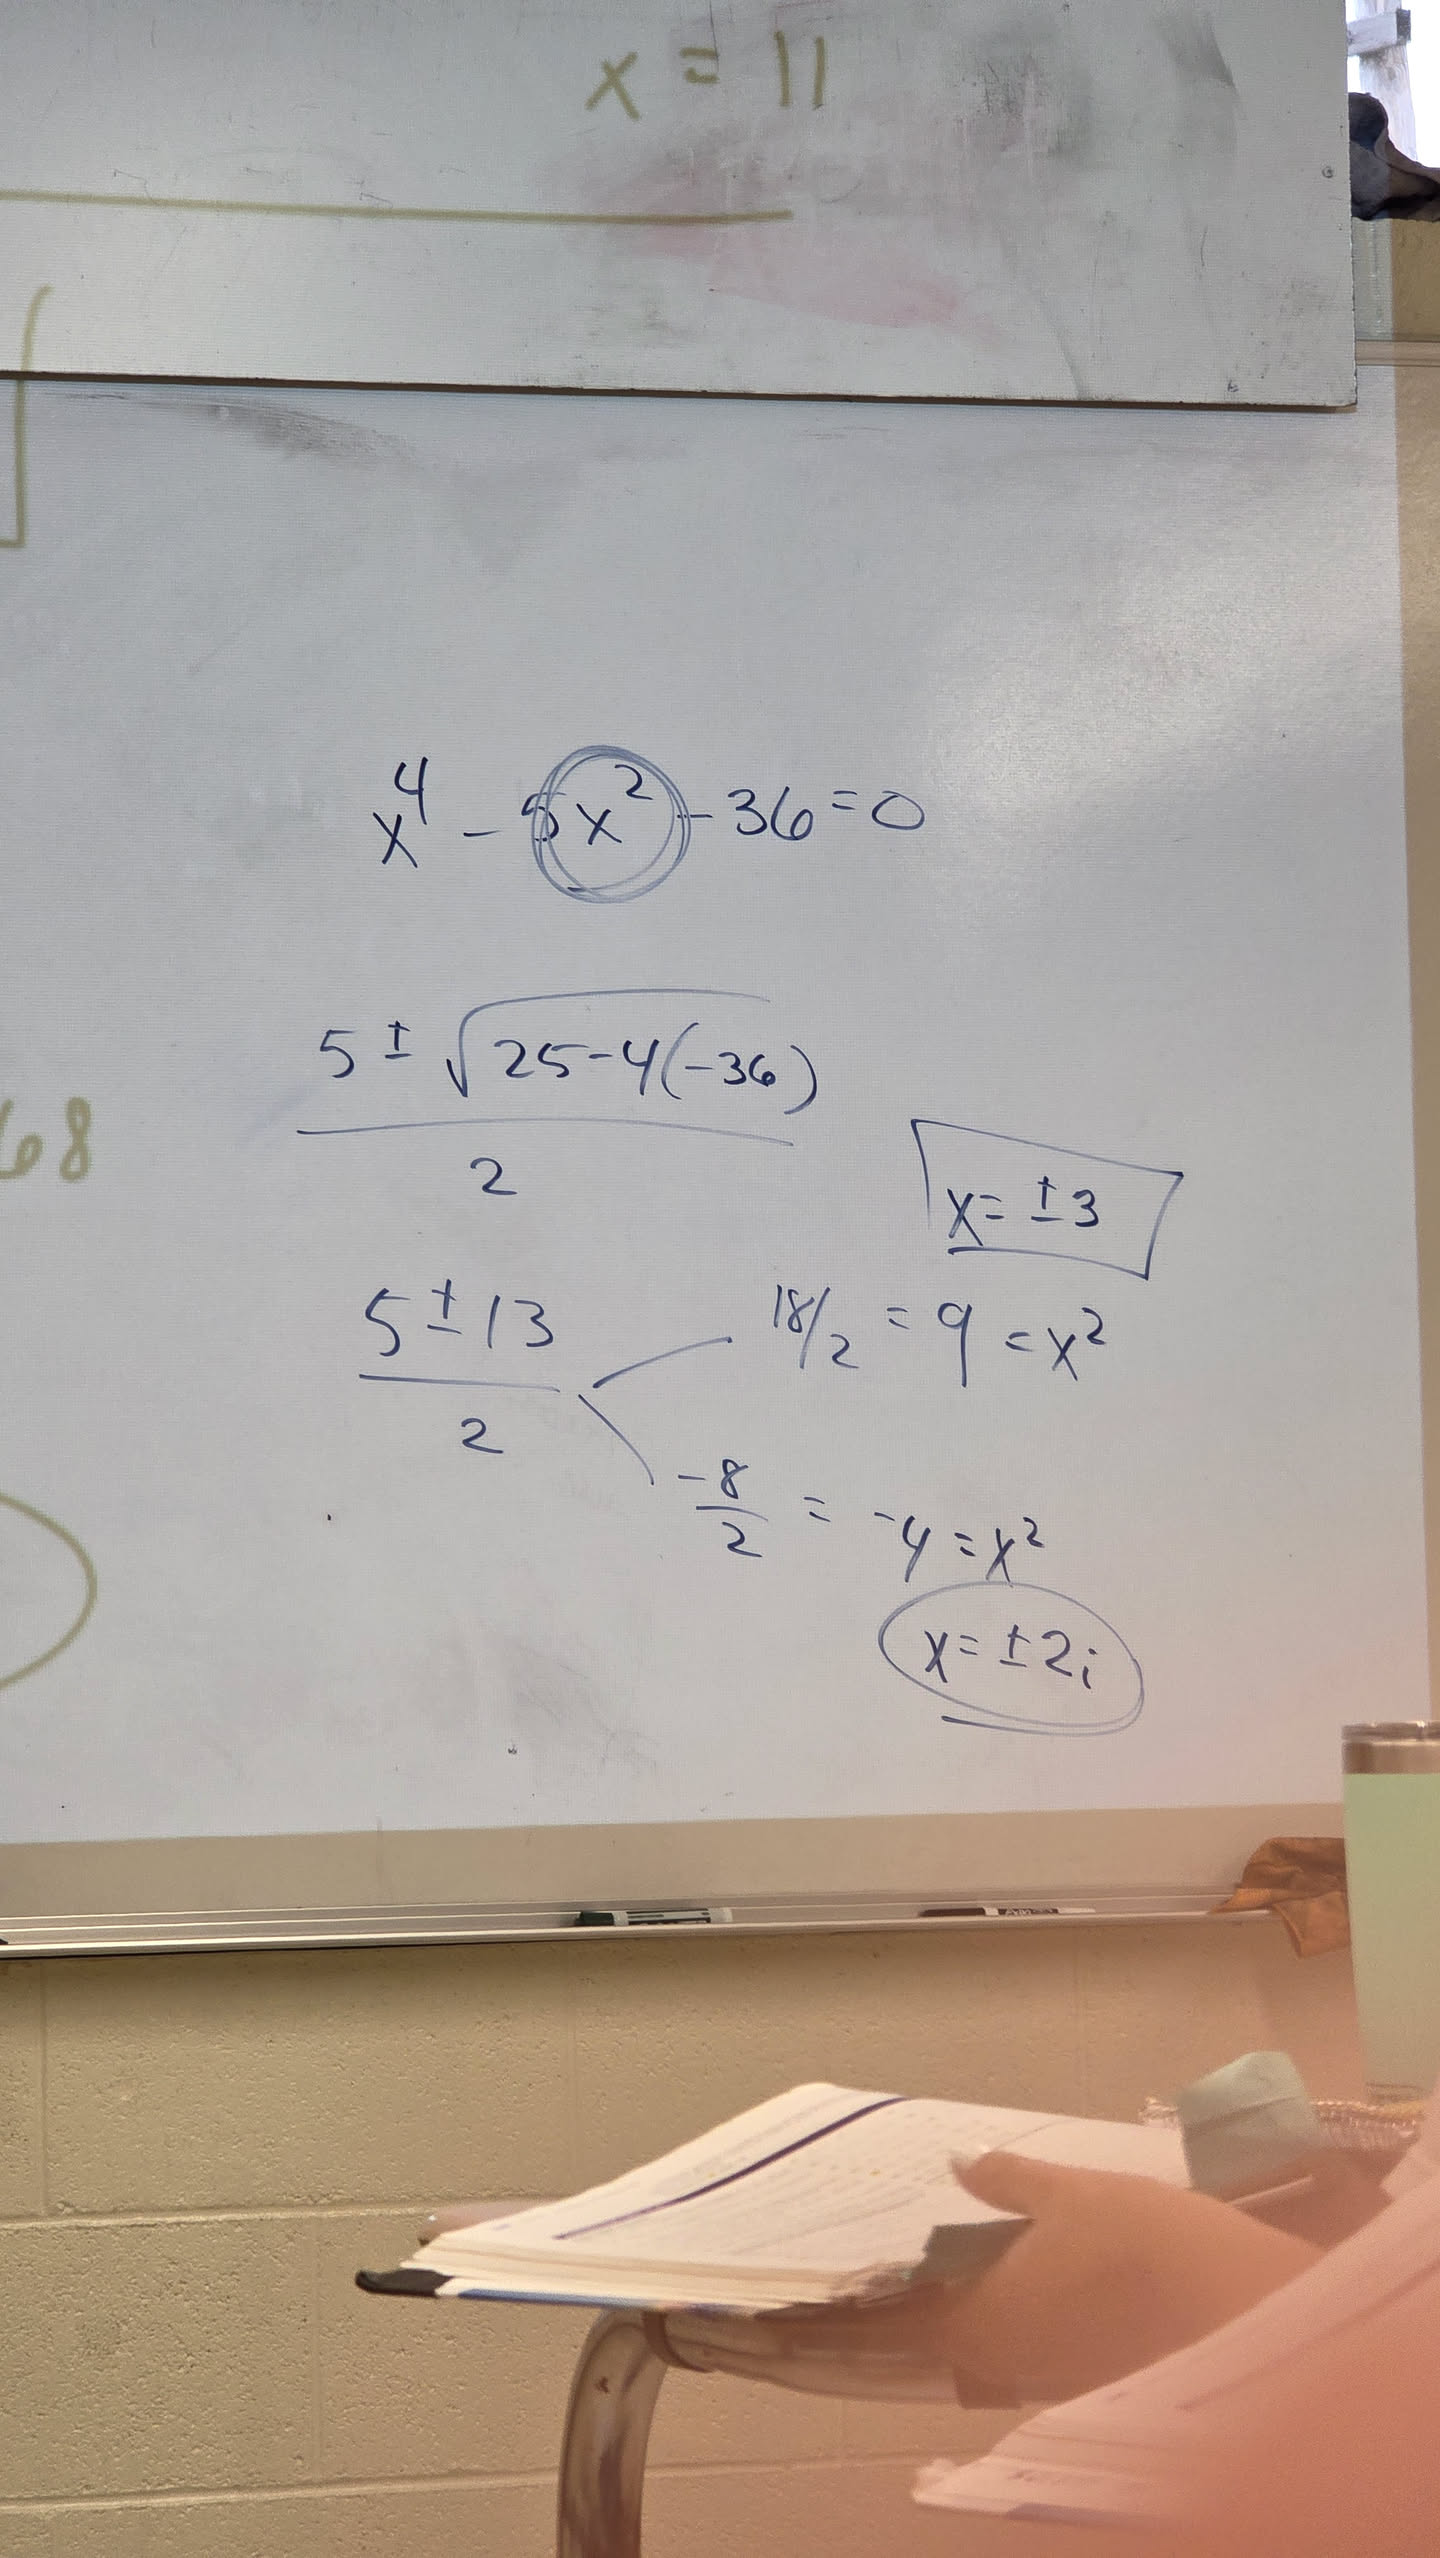 x = 11
x⁴ - 5x² - 36 = 0
5 ± √25-4(-36)
2
68
x = ±3
5 ± 13
2
18/2 = 9 = x²
-8
2
= -4 = x²
x = ±2i